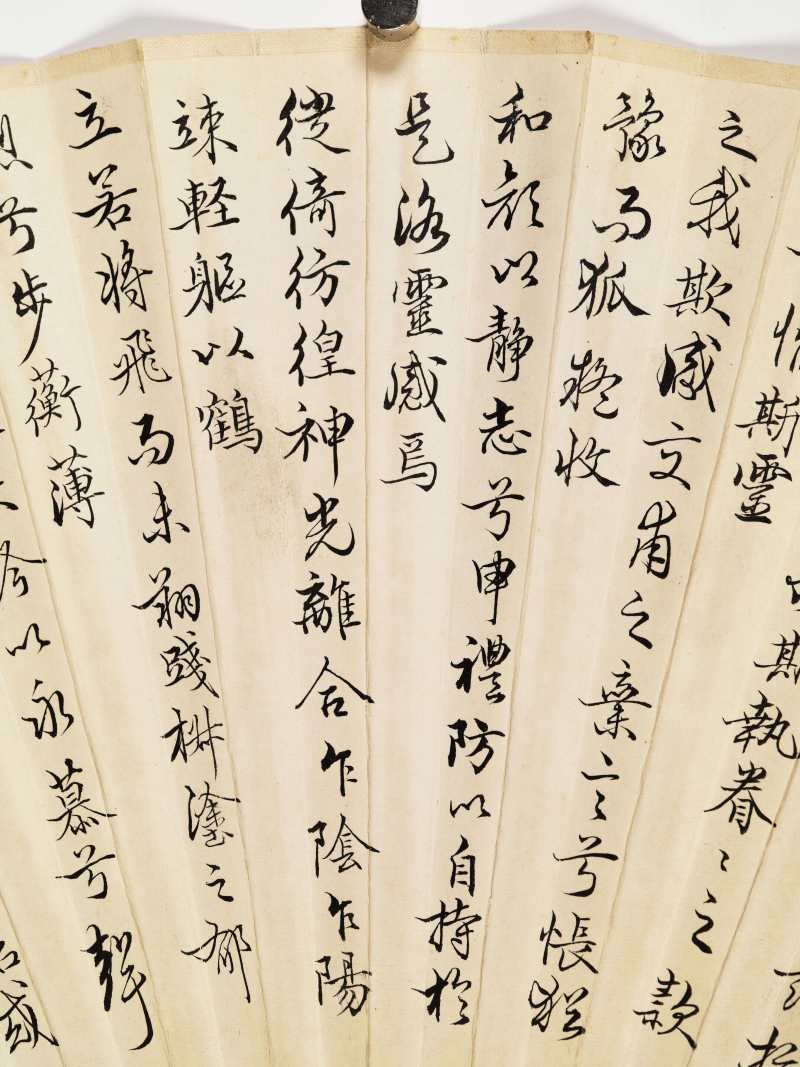 期執眷〻之款
兮懼斯靈
之我欺感交甫之棄言兮悵猶
豫而狐疑收
和顏以静志兮申禮防以自持於
是洛靈感焉
徙倚彷徨神光離合乍陰乍陽
竦軽軀以鶴
立若將飛而未翔踐椒塗之郁
兮步蘅薄
吟以永慕兮聲